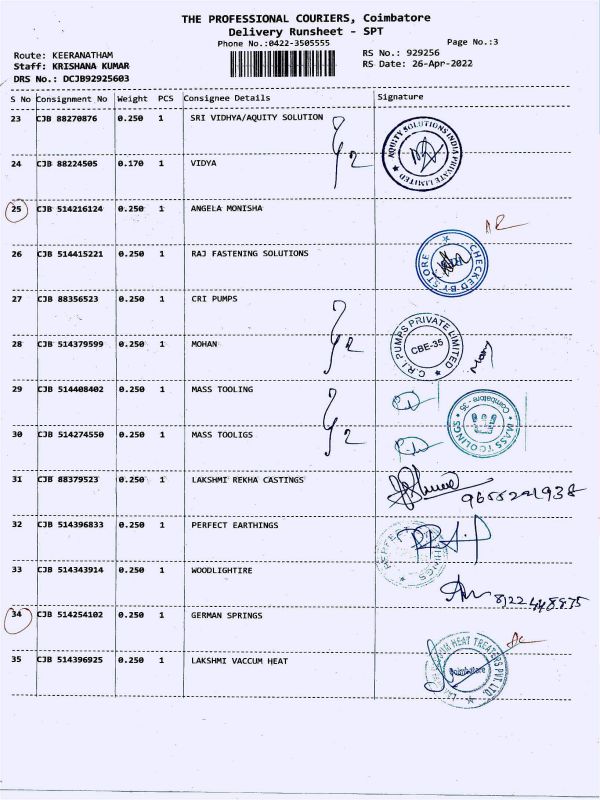 THE PROFESSIONAL COURIERS, Coimbatore
Delivery Runsheet - SPT
Phone No.:0422-3505555
Page No.:3
Route: KEERANATHAM
RS No.: 929256
Staff: KRISHANA KUMAR
RS Date: 26-Apr-2022
DRS No.: DCJB92925603
S No Consignment No Weight PCS Consignee Details Signature
23 CJB 88270876 0.250 1 SRI VIDHYA/AQUITY SOLUTION
AQUITY SOLUTIONS INDIA PRIVATE LIMITED
24 CJB 88224505 0.170 1 VIDYA
25 CJB 514216124 0.250 1 ANGELA MONISHA
26 CJB 514415221 0.250 1 RAJ FASTENING SOLUTIONS
CHECKED BY STORE
27 CJB 88356523 0.250 1 CRI PUMPS
C.R.I. PUMPS PRIVATE LIMITED
CBE-35
28 CJB 514379599 0.250 1 MOHAN
29 CJB 514408402 0.250 1 MASS TOOLING
MASS TOOLINGS
Coimbatore - 35
30 CJB 514274550 0.250 1 MASS TOOLIGS
31 CJB 88379523 0.250 1 LAKSHMI REKHA CASTINGS
32 CJB 514396833 0.250 1 PERFECT EARTHINGS
33 CJB 514343914 0.250 1 WOODLIGHTIRE
34 CJB 514254102 0.250 1 GERMAN SPRINGS
35 CJB 514396925 0.250 1 LAKSHMI VACCUM HEAT
HEAT TREATERS PVT. LTD.
Coimbatore